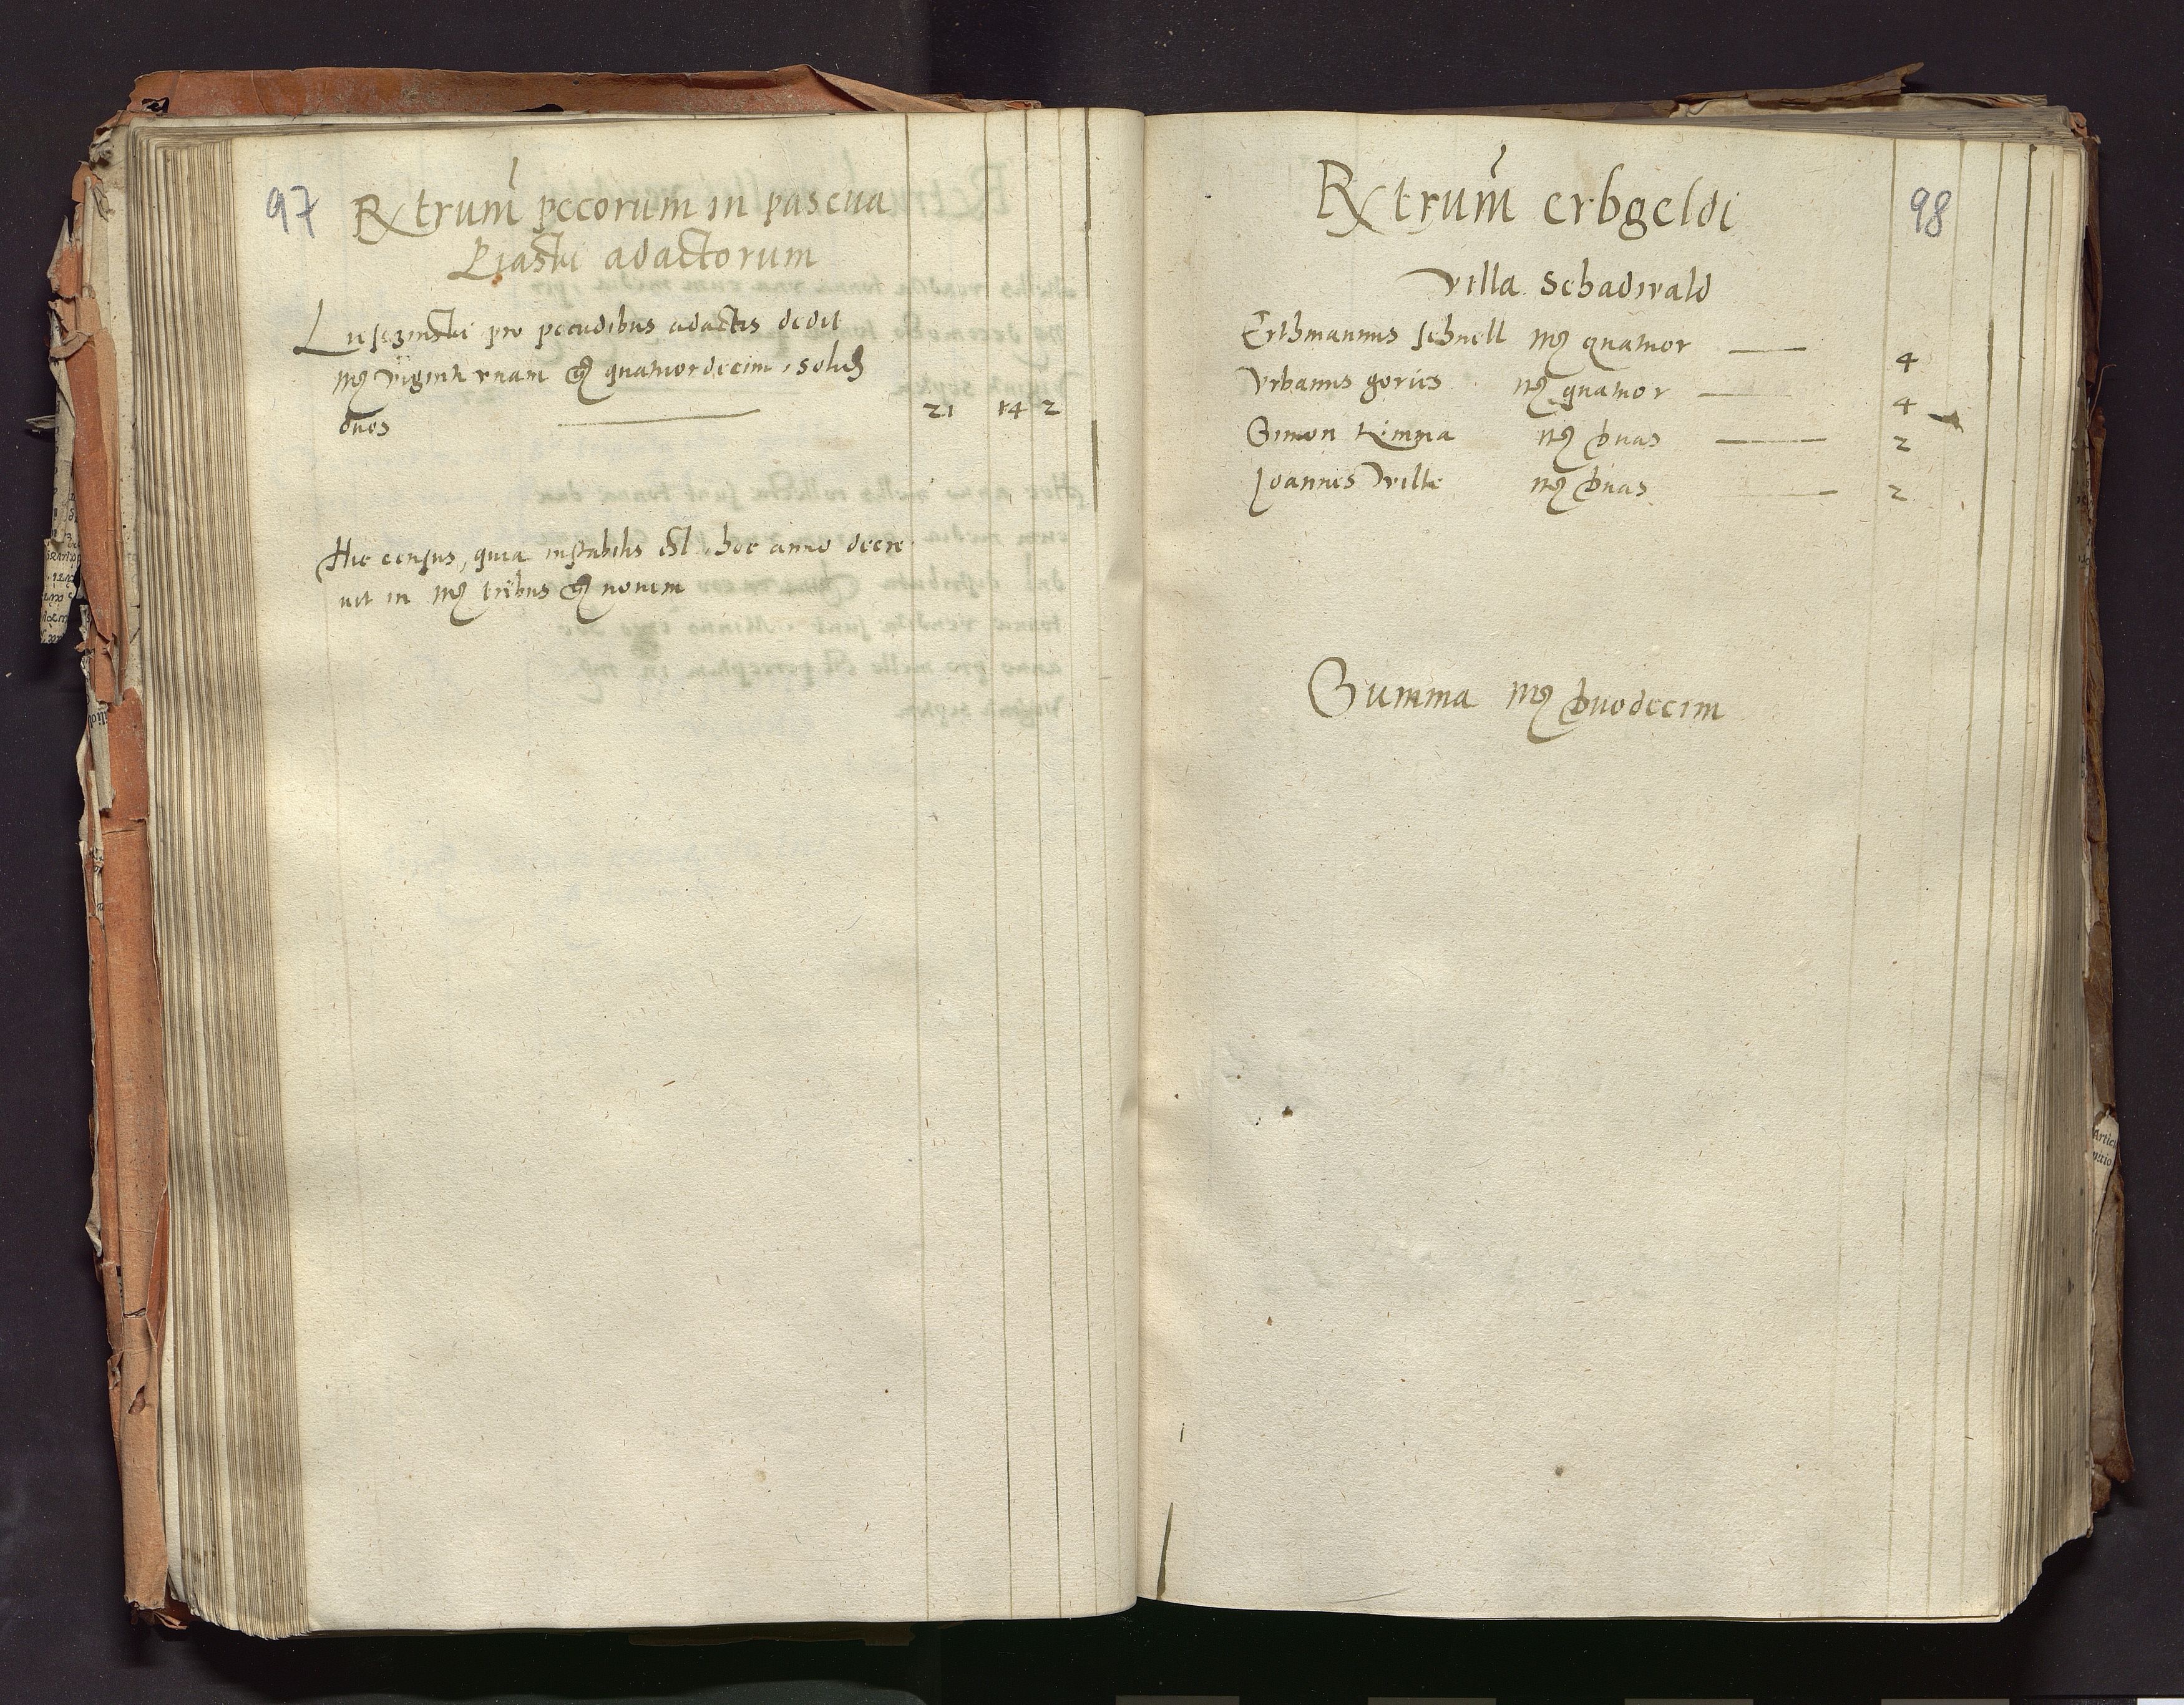 97
Rxtrum̃ pecorum in pascua
Piaski adactorum
Luszinski pro pecudibus adactis dedit
mꝝ viginti vnam gꝝ quatuordecim, solid
duos 21 14 2
Hic census, quia instabilis est hoc anno decre
uit in mꝝ tribus gꝝ nouem
98
Rxtrum̃ erbgeldi
villa Schadwald
Erthmannus schnell mꝝ quatuor 4
Vrbanus gories mꝝ quatuor 4
Simon mꝝ duas 2
Joannes Wilke mꝝ duas 2
Summa mꝝ duodecim